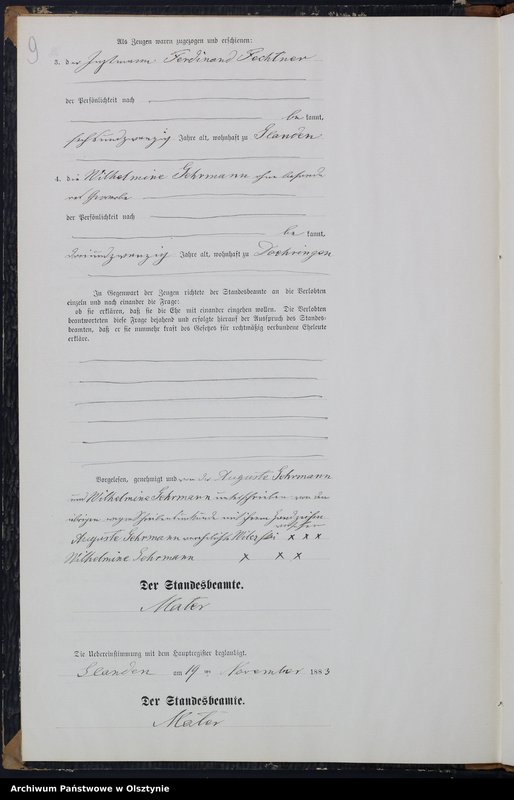 9
Als Zeugen waren zugezogen und erschienen:
3. der Instmann Ferdinand Fechtner
der Persönlichkeit nach
be kannt,
sechsundzwanzig Jahre alt, wohnhaft zu Glanden
4. die Wilhelmine Gehrmann ohne besonde
res Gewerbe
der Persönlichkeit nach
be kannt,
dreiundzwanzig Jahre alt, wohnhaft zu Doehringen
In Gegenwart der Zeugen richtete der Standesbeamte an die Verlobten
einzeln und nach einander die Frage:
ob sie erklären, daß sie die Ehe mit einander eingehen wollen. Die Verlobten
beantworteten diese Frage bejahend und erfolgte hierauf der Ausspruch des Standes-
beamten, daß er sie nunmehr kraft des Gesetzes für rechtmäßig verbundene Eheleute
erkläre.
Vorgelesen, genehmigt und von der Auguste Gehrmann
und Wilhelmine Gehrmann unterschrieben von den
übrigen wegen Schreibensunkunde mit ihrem Handzeichen
versehen
Auguste Gehrmann verehelichte x x x
Wilhelmine Gehrmann x x x
Der Standesbeamte.
Mater
Die Uebereinstimmung mit dem Hauptregister beglaubigt.
Glanden am 19 ten November 1883
Der Standesbeamte.
Mater
Archiwum Państwowe w Olsztynie